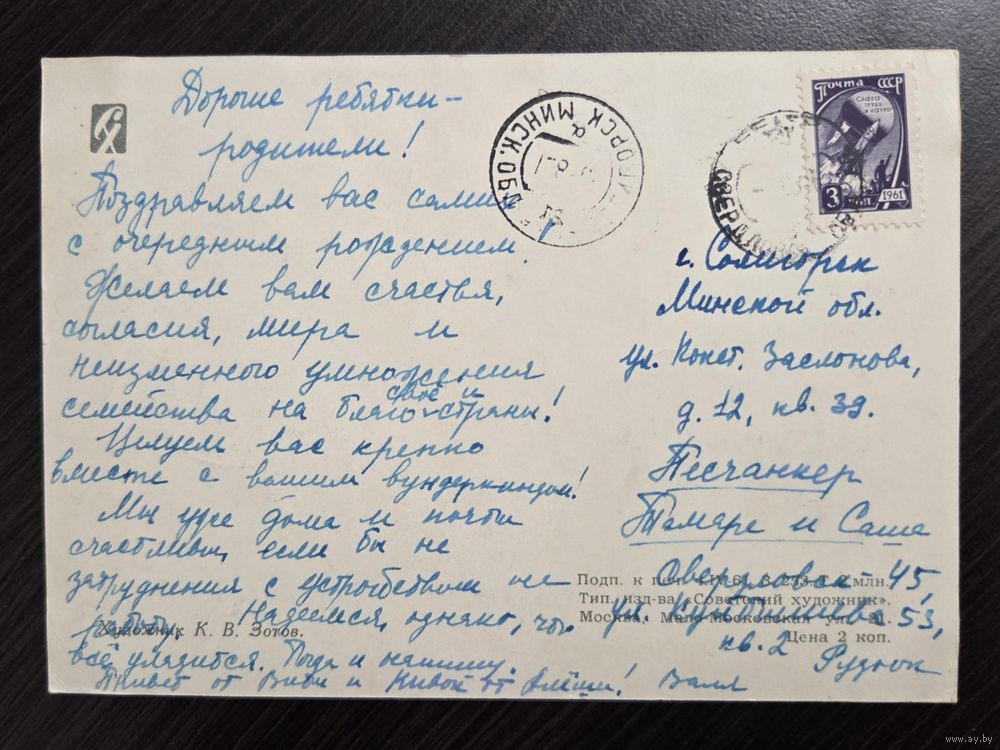 Дорогие ребятки-
родители!
Поздравляем вас самих
с очередным рождением.
Желаем вам счастья,
согласия, мира и
неизменного умножения
семейства на благо своё и страны!
Целуем вас крепко
вместе с вашим вундеркиндом!
Мы уже дома и почти
счастливы, если бы не
затруднения с устройством на
работу. Надеемся, однако, что
всё уладится. Тогда и напишу.
Привет от Вити и от Алёши! Валя
Художник К. В. Зотов.
МИНСК. ОБЛ
СВЕРДЛОВСК
ПОЧТА СССР
СЛАВА
ТРУДУ
И НАУКЕ
3 КОП
1961
г. Солигорск
Минской обл.
ул. Конст. Заслонова,
д. 12, кв. 39.
Песчанкер
Тамаре и Саше
Свердловск-45,
ул. Куйбышева 53,
кв. 2
Рудник
Подп. к печ. млн.
Тип. изд-ва «Советский художник».
Москва, Мало-Московская ул.
Цена 2 коп.
www.ay.by